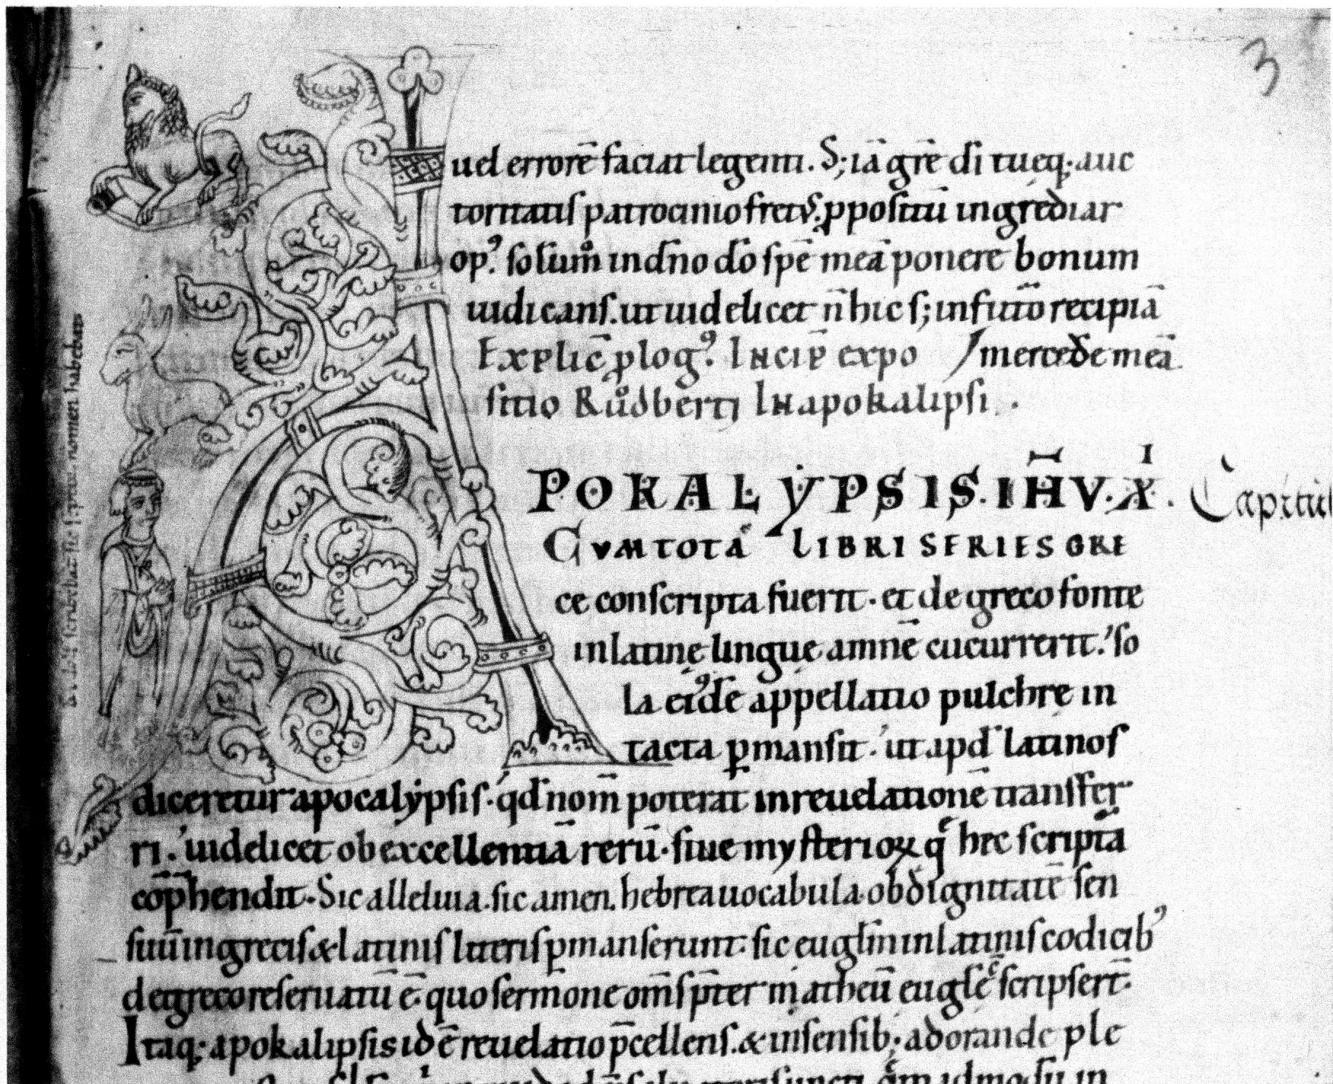 3
uel errorē faciat legenti. S; iā grē di tueq; auc
toritatis patrocinio fret9. ꝓpositū ingrediar
op9. solum in dño dō spē meā ponere bonum
iudicans. ut uidelicet n̄ hic s; in futō recipiā
Explic̄ ꝓlog9. Incip̄ expo / mercede meā
sitio Ruͦdberti In apokalipsi.
POKALYPSIS. IH̄V. XI.
Capitul
CVM TOTA LIBRI SERIES GRE
ce conscripta fuerit. et de greco fonte
in latinę linguę amnē cucurrerit. so
la ei9dē appellatio pulchre in
tacta ꝑmansit. ut apd̄ latinos
diceretur apocalypsis. qd̄ nom̄ poterat in reuelationē transfer
ri. uidelicet ob excellentiā rerū. siue mysterioꝝ q̄ hec scriptā
cōp̄hendit. Sic alleluia. sic amen. hebrea uocabula. ob dignitatē sen
suū in grecis & latinis litteris ꝑmanserunt: sic eugl̄m in latinis codicib9
de greco reseruatū ē. quo sermone om̄s p̄ter matheū eugl̄ē scripsert̄.
Itaq; apokalipsis id ē reuelatio p̄cellens. & in sensib; adorande ple